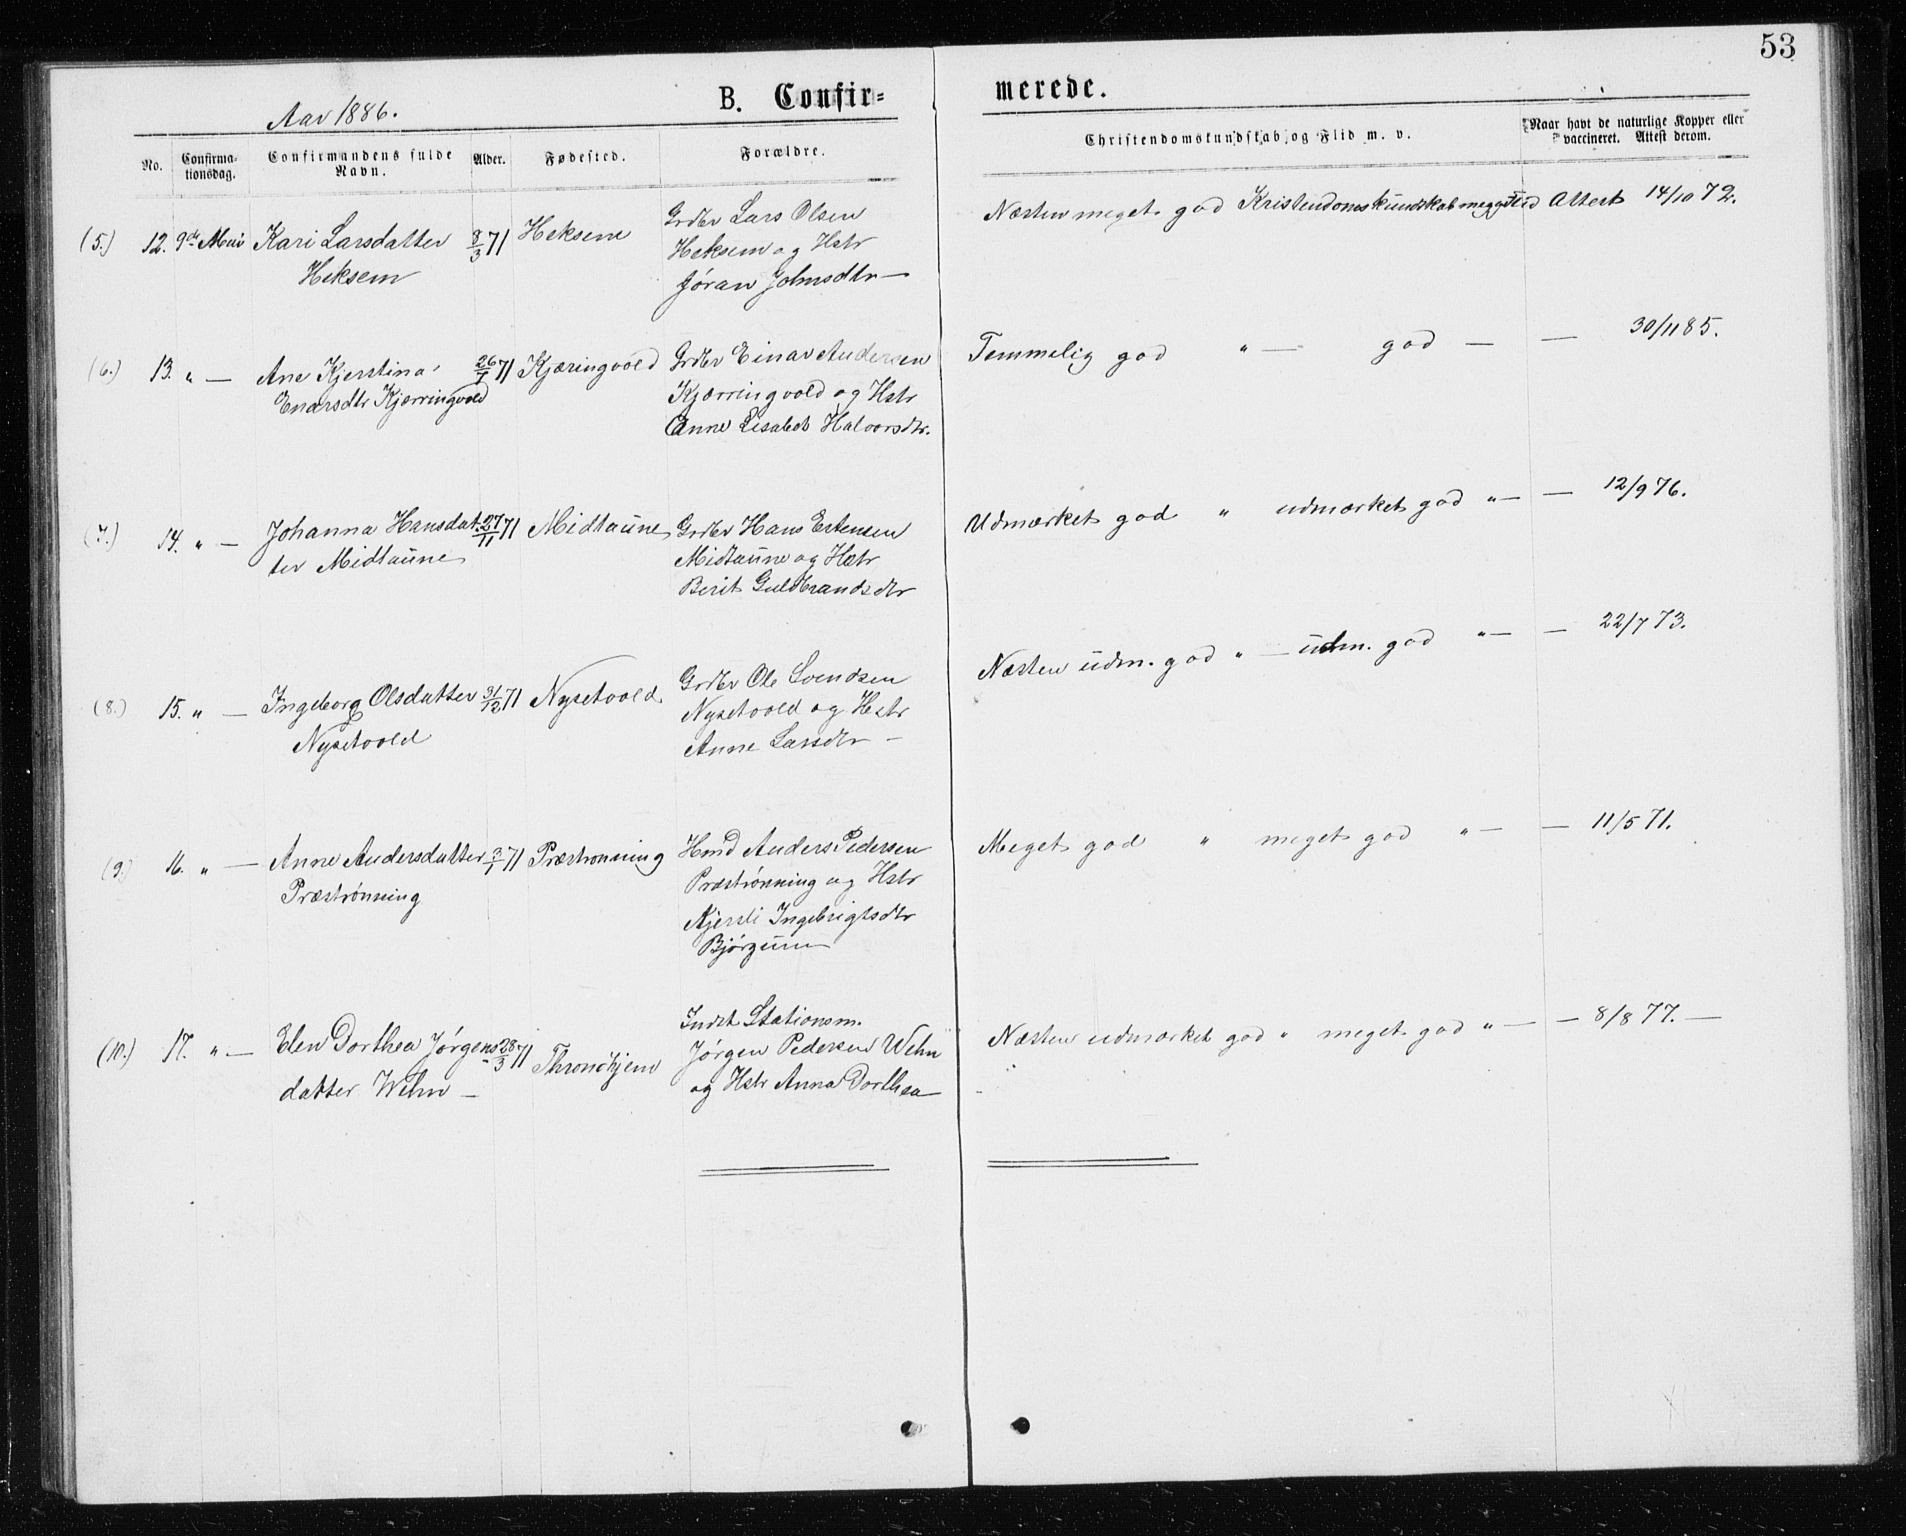 53
Aar 1886.
B. Confir=
merede.
No.
Confirma-
tionsdag.
Confirmandens fulde
Navn.
Alder.
Fødested.
Forældre.
Christendomskundskab og Flid m. v.
Naar havt de naturlige Kopper eller
vaccineret. Attest derom.
(5.) 12. 9de Mai Kari Larsdatter 8/3 71 Heksem Grdbr Lars Olsen Næsten meget god Kristendomskundskab meg god Flid Attest 14/10 72.
Heksem Heksem og Hstr
Jøran Johnsdtr —
(6.) 13. " — Ane Kjerstina 26/7 71 Kjæringvold Grdbr Einar Andersen Temmelig god " — god — — 30/11 85.
Enarsdtr Kjærringvold Kjærringvold og Hstr
Anne Lisabet Halvorsdtr.
(7.) 14. " — Johanna Hansdat- 27/11 71 Midtaune Grdbr Hans Estensen Udmærket god " udmærket god " — — 12/9 76.
ter Midtaune Midtaune og Hstr
Berit Guldbrandsdtr
(8.) 15. " — Ingeborg Olsdatter 31/12 71 Nysetvold Grdbr Ole Svendsen Næsten udm. god " — udm. god " — — 22/7 73.
Nysetvold Nysetvold og Hstr
Anne Larsdtr —
(9.) 16. " — Anne Andersdatter 3/1 71 Præstrønning Hmd Anders Pedersen Meget god " meget god " — — 11/5 71.
Præstrønning Præstrønning og Hstr
Kjersti Ingebrigtsdtr
Bjørgum
(10.) 17. " — Elen Dorthea Jørgens- 28/3 71 Throndhjem Indst Stationsm. Næsten udmærket god " meget god " — — 8/8 77. —
datter Wehn — Jørgen Pedersen Wehn
og Hstr Anna Dorthea —